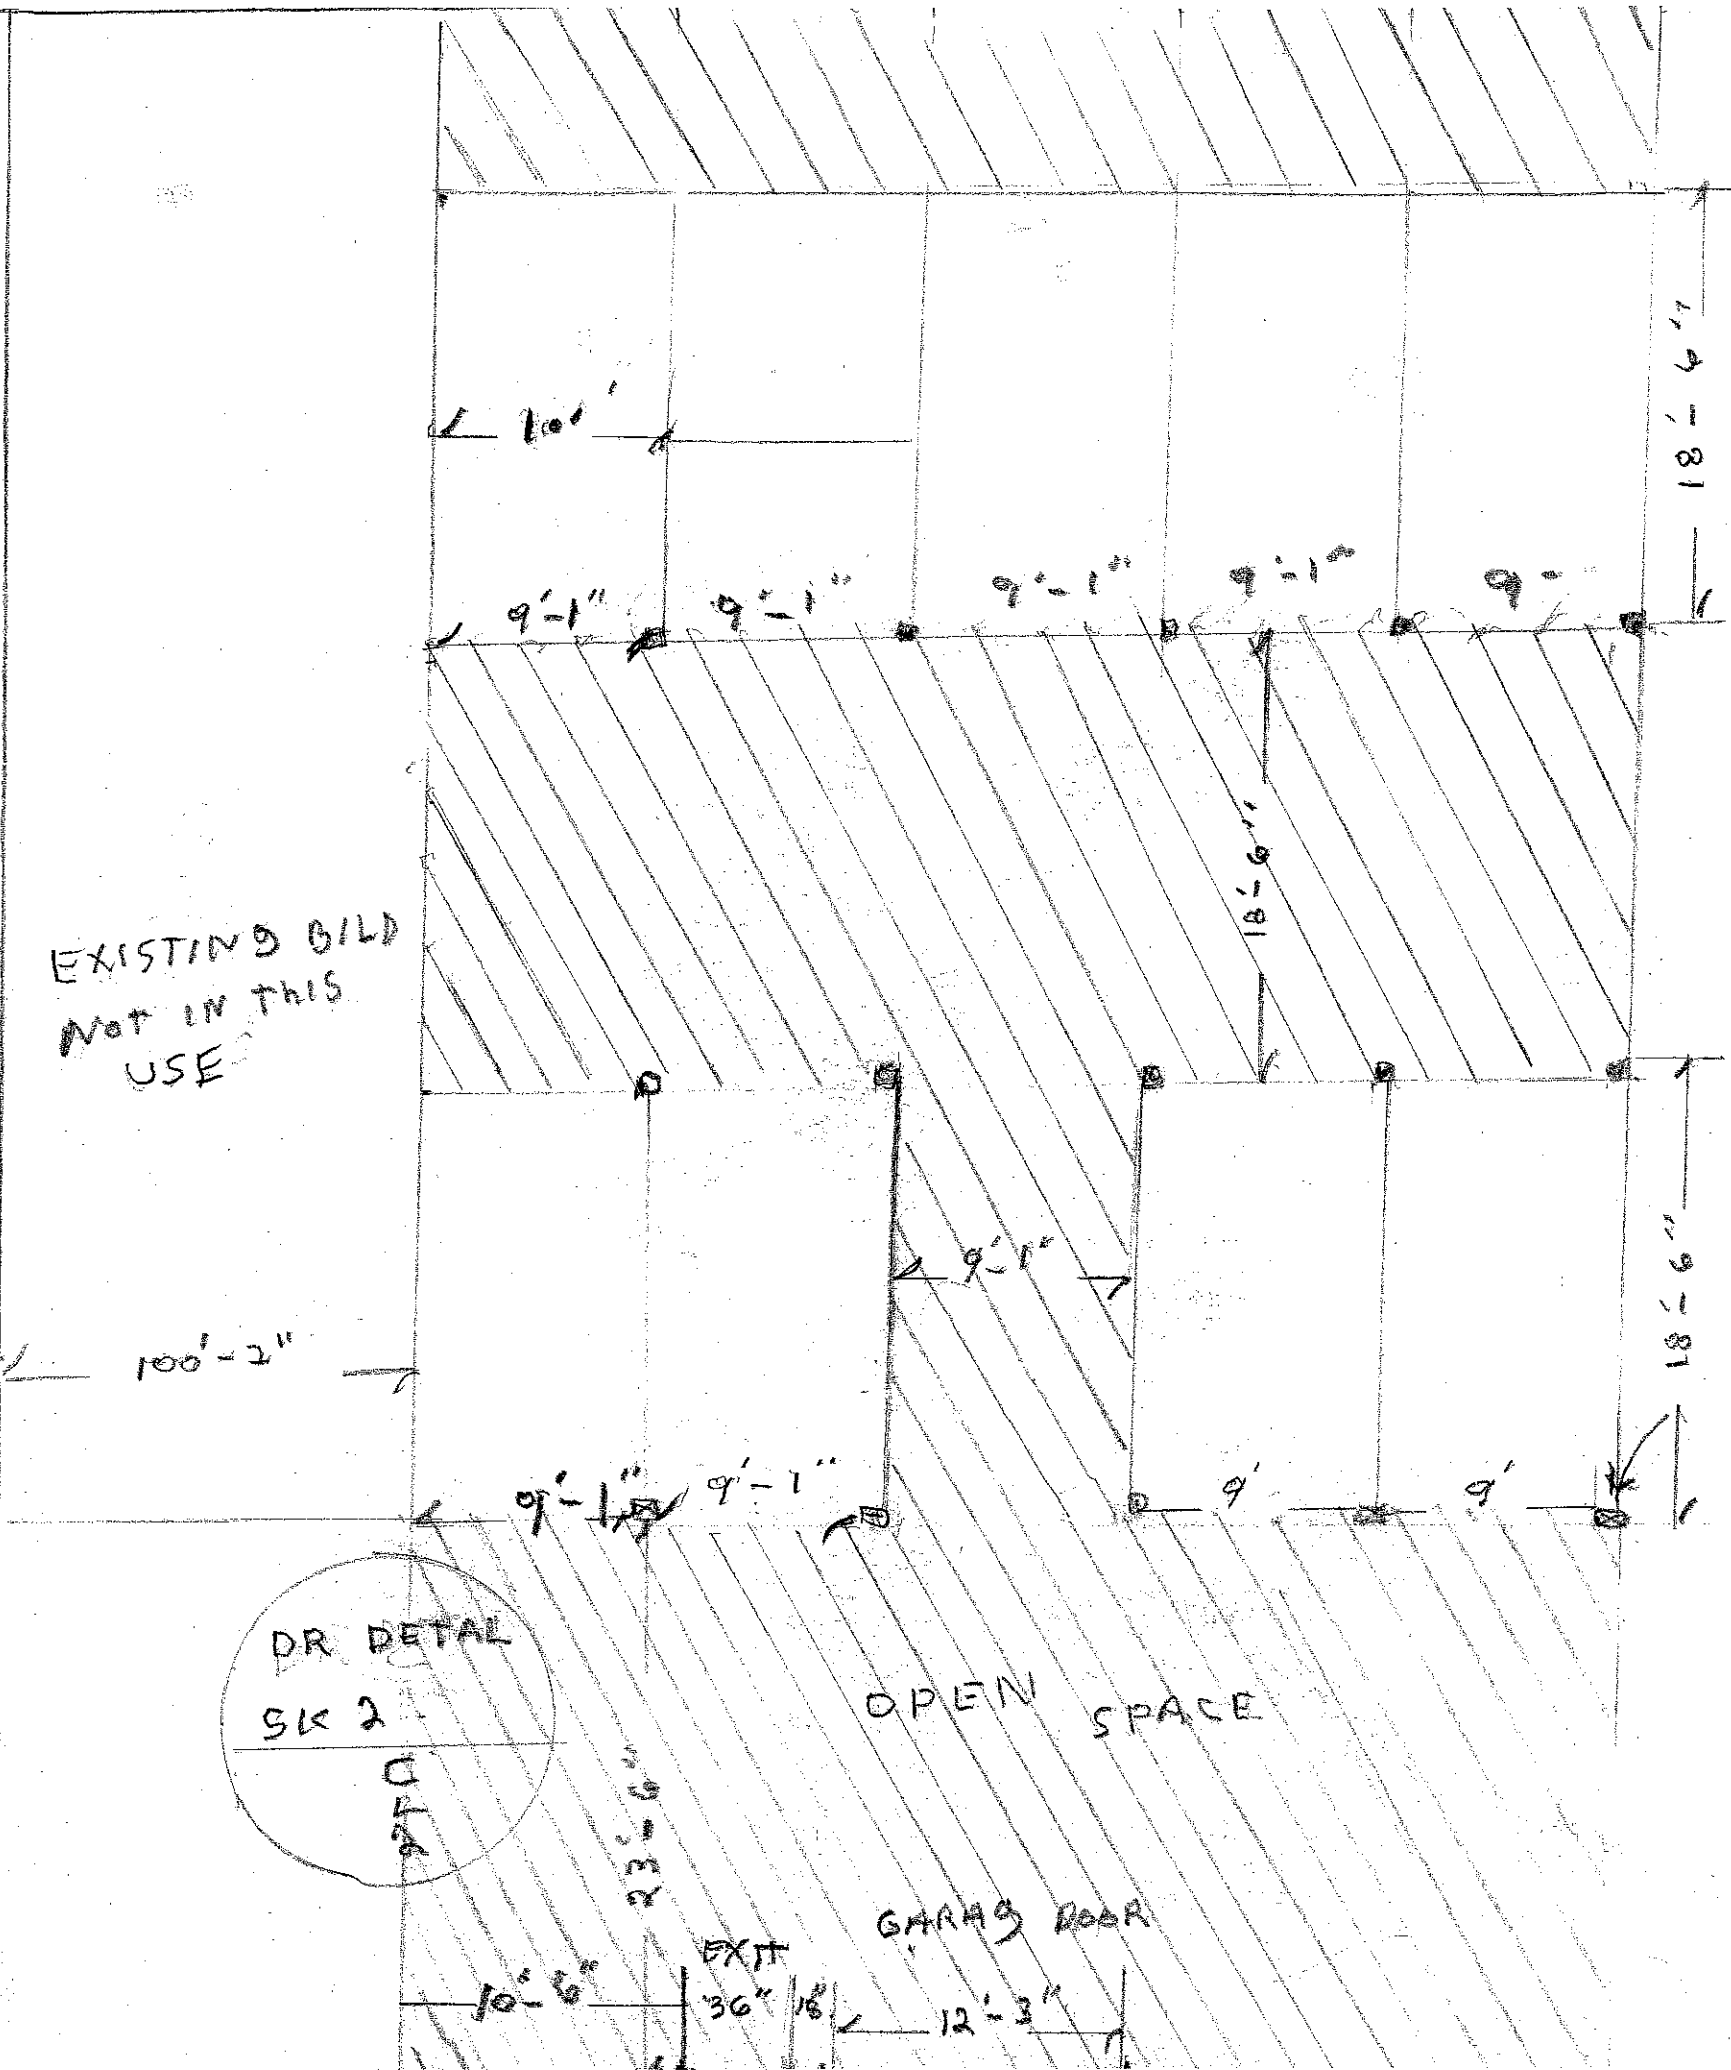 18'-4"
10'
9'-1" 9'-1" 9'-1" 9'-1" 9'-
18'-6"
EXISTING BILD
NOT IN THIS
USE
9'-1"
18'-6"
100'-2"
9'-1" 9'-1" 9' 9'
DR DETAL
SK 2
OPEN SPACE
23'-6"
GARAG DOOR
EXIT
10'-6" 36" 18" 12'-3"